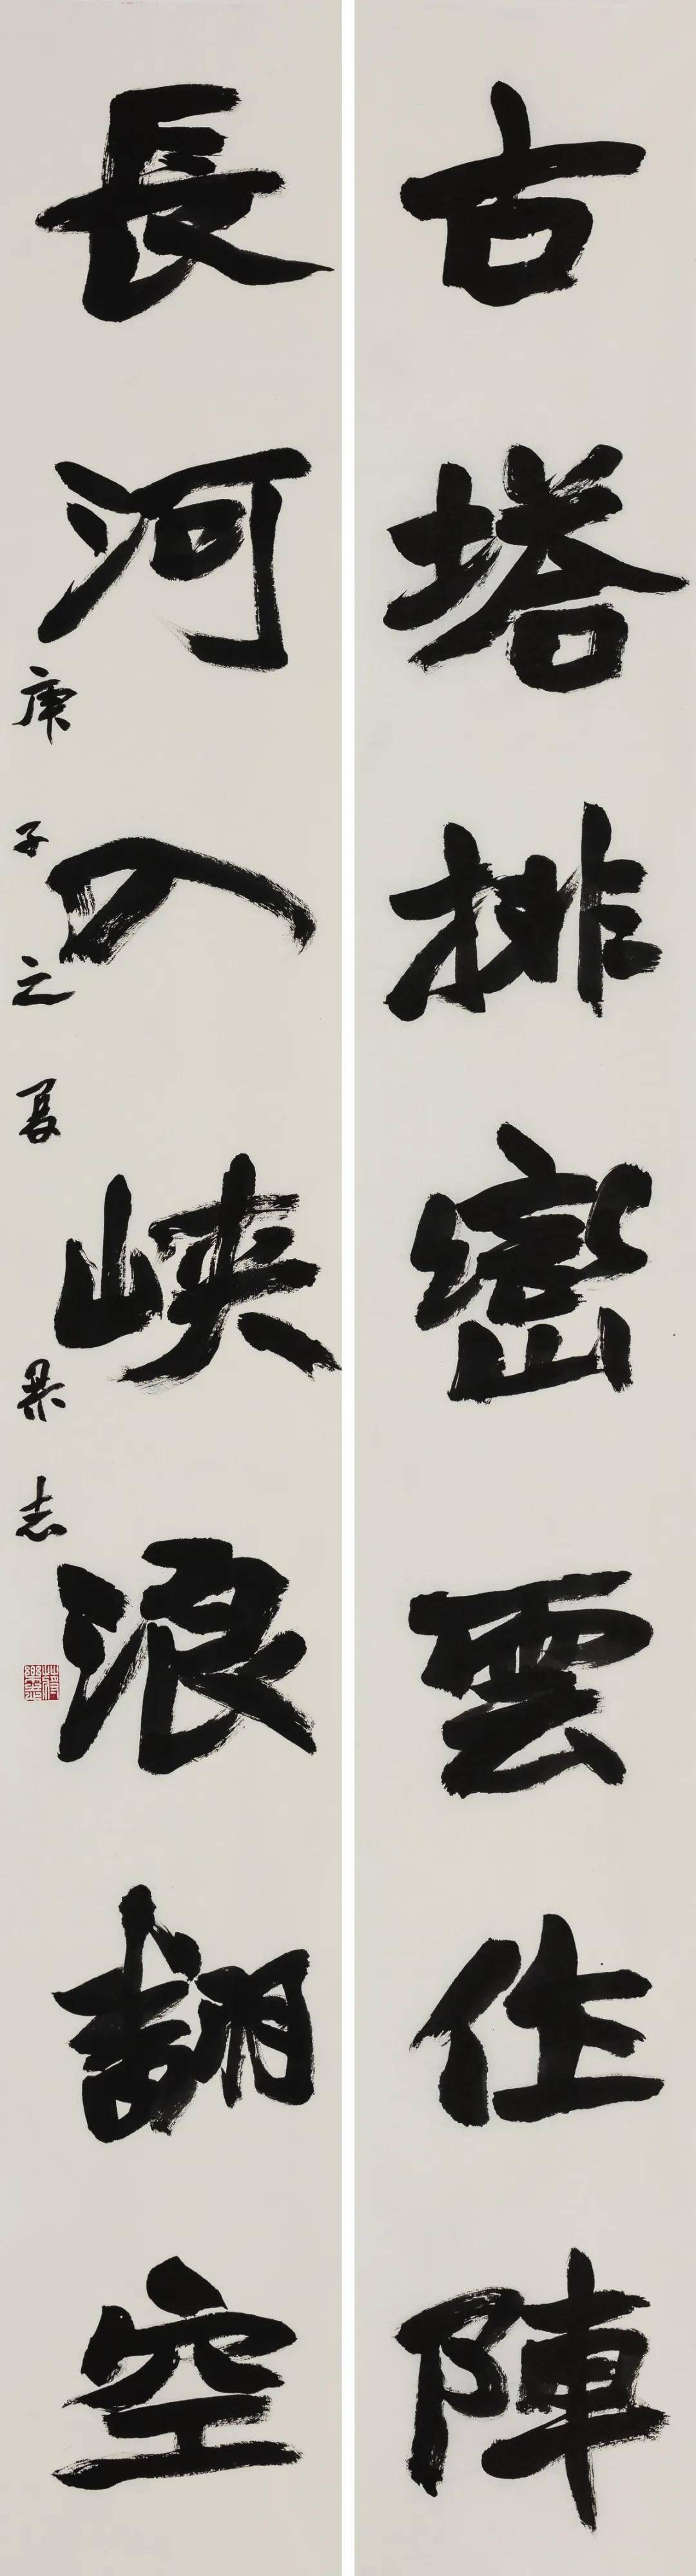 古塔排巒雲作陣
長河入峽浪翻空
庚子之夏
志